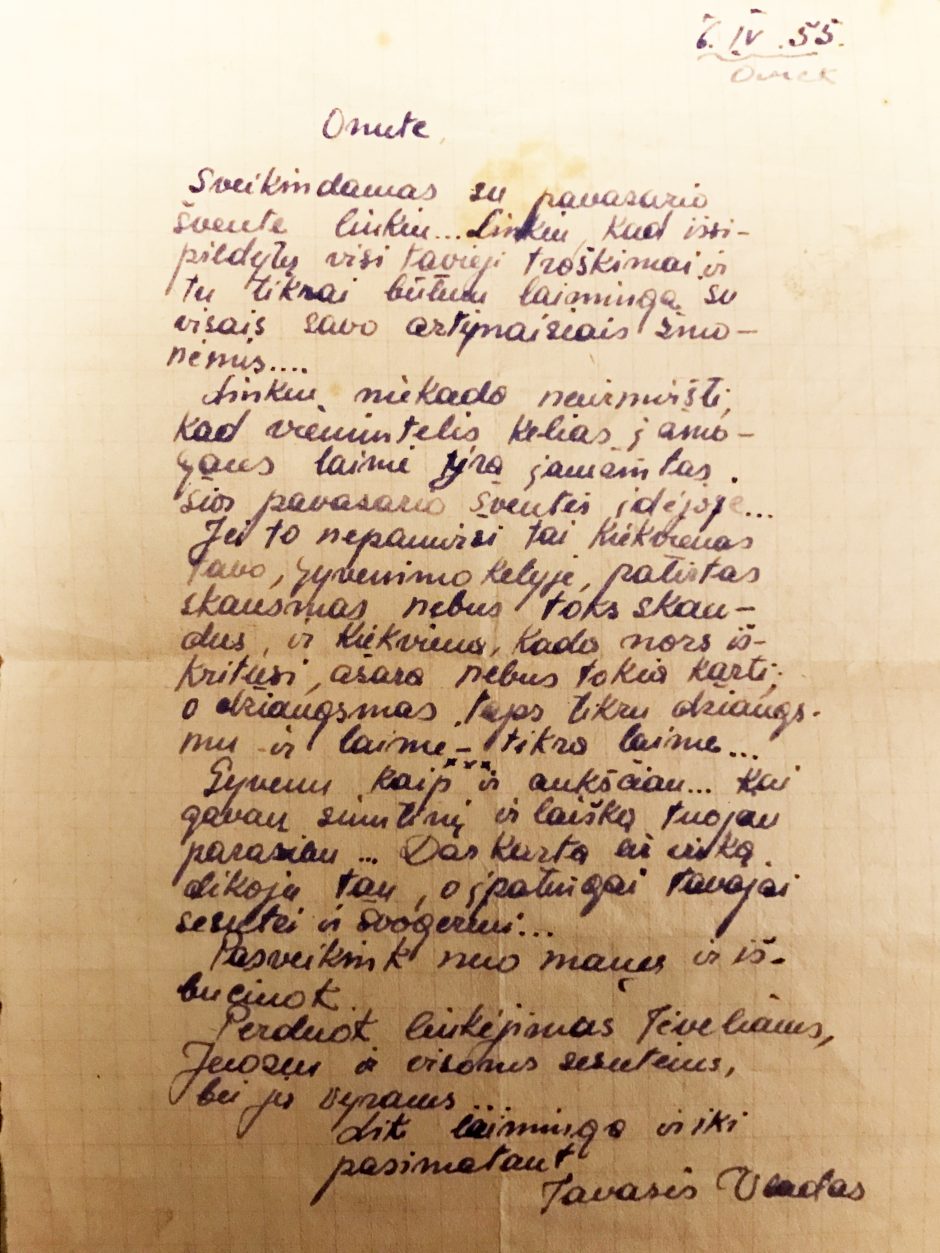 6. IV. 55.
Omsk
Onute,
Sveikindamas su pavasario
švente linkiu... Linkiu, kad išsi-
pildytų visi tavieji troškimai ir
tu tikrai būtum laiminga su
visais savo artimaisiais žmo-
nėmis....
Linkiu niekado neužmiršti,
kad vienintelis kelias į žmo-
gaus laimę yra įamžintas
šios pavasario šventės idėjoje...
Jei to nepamirši tai kiekvienas
tavo, gyvenimo kelyje, patirtas
skausmas nebus toks skau-
dus, ir kiekviena, kada nors iš-
kritusi, ašara nebus tokia karti,
o džiaugsmas taps tikru džiaugs-
mu ir laimė - tikra laime...
Gyvenu kaip ir aukščiau... Kai
gavau siuntinį ir laišką tuojau
parašiau... Dar kartą už viską
dėkoju tau, o ypatingai tavajai
sesutei ir švogeriui...
Pasveikink nuo manęs ir iš-
bučiuok
Perduok linkėjimas Tėveliams,
Juozui ir visoms sesutėms,
bei jų vyrams...
Lik laiminga ir iki
pasimatant
Tavasis Vladas